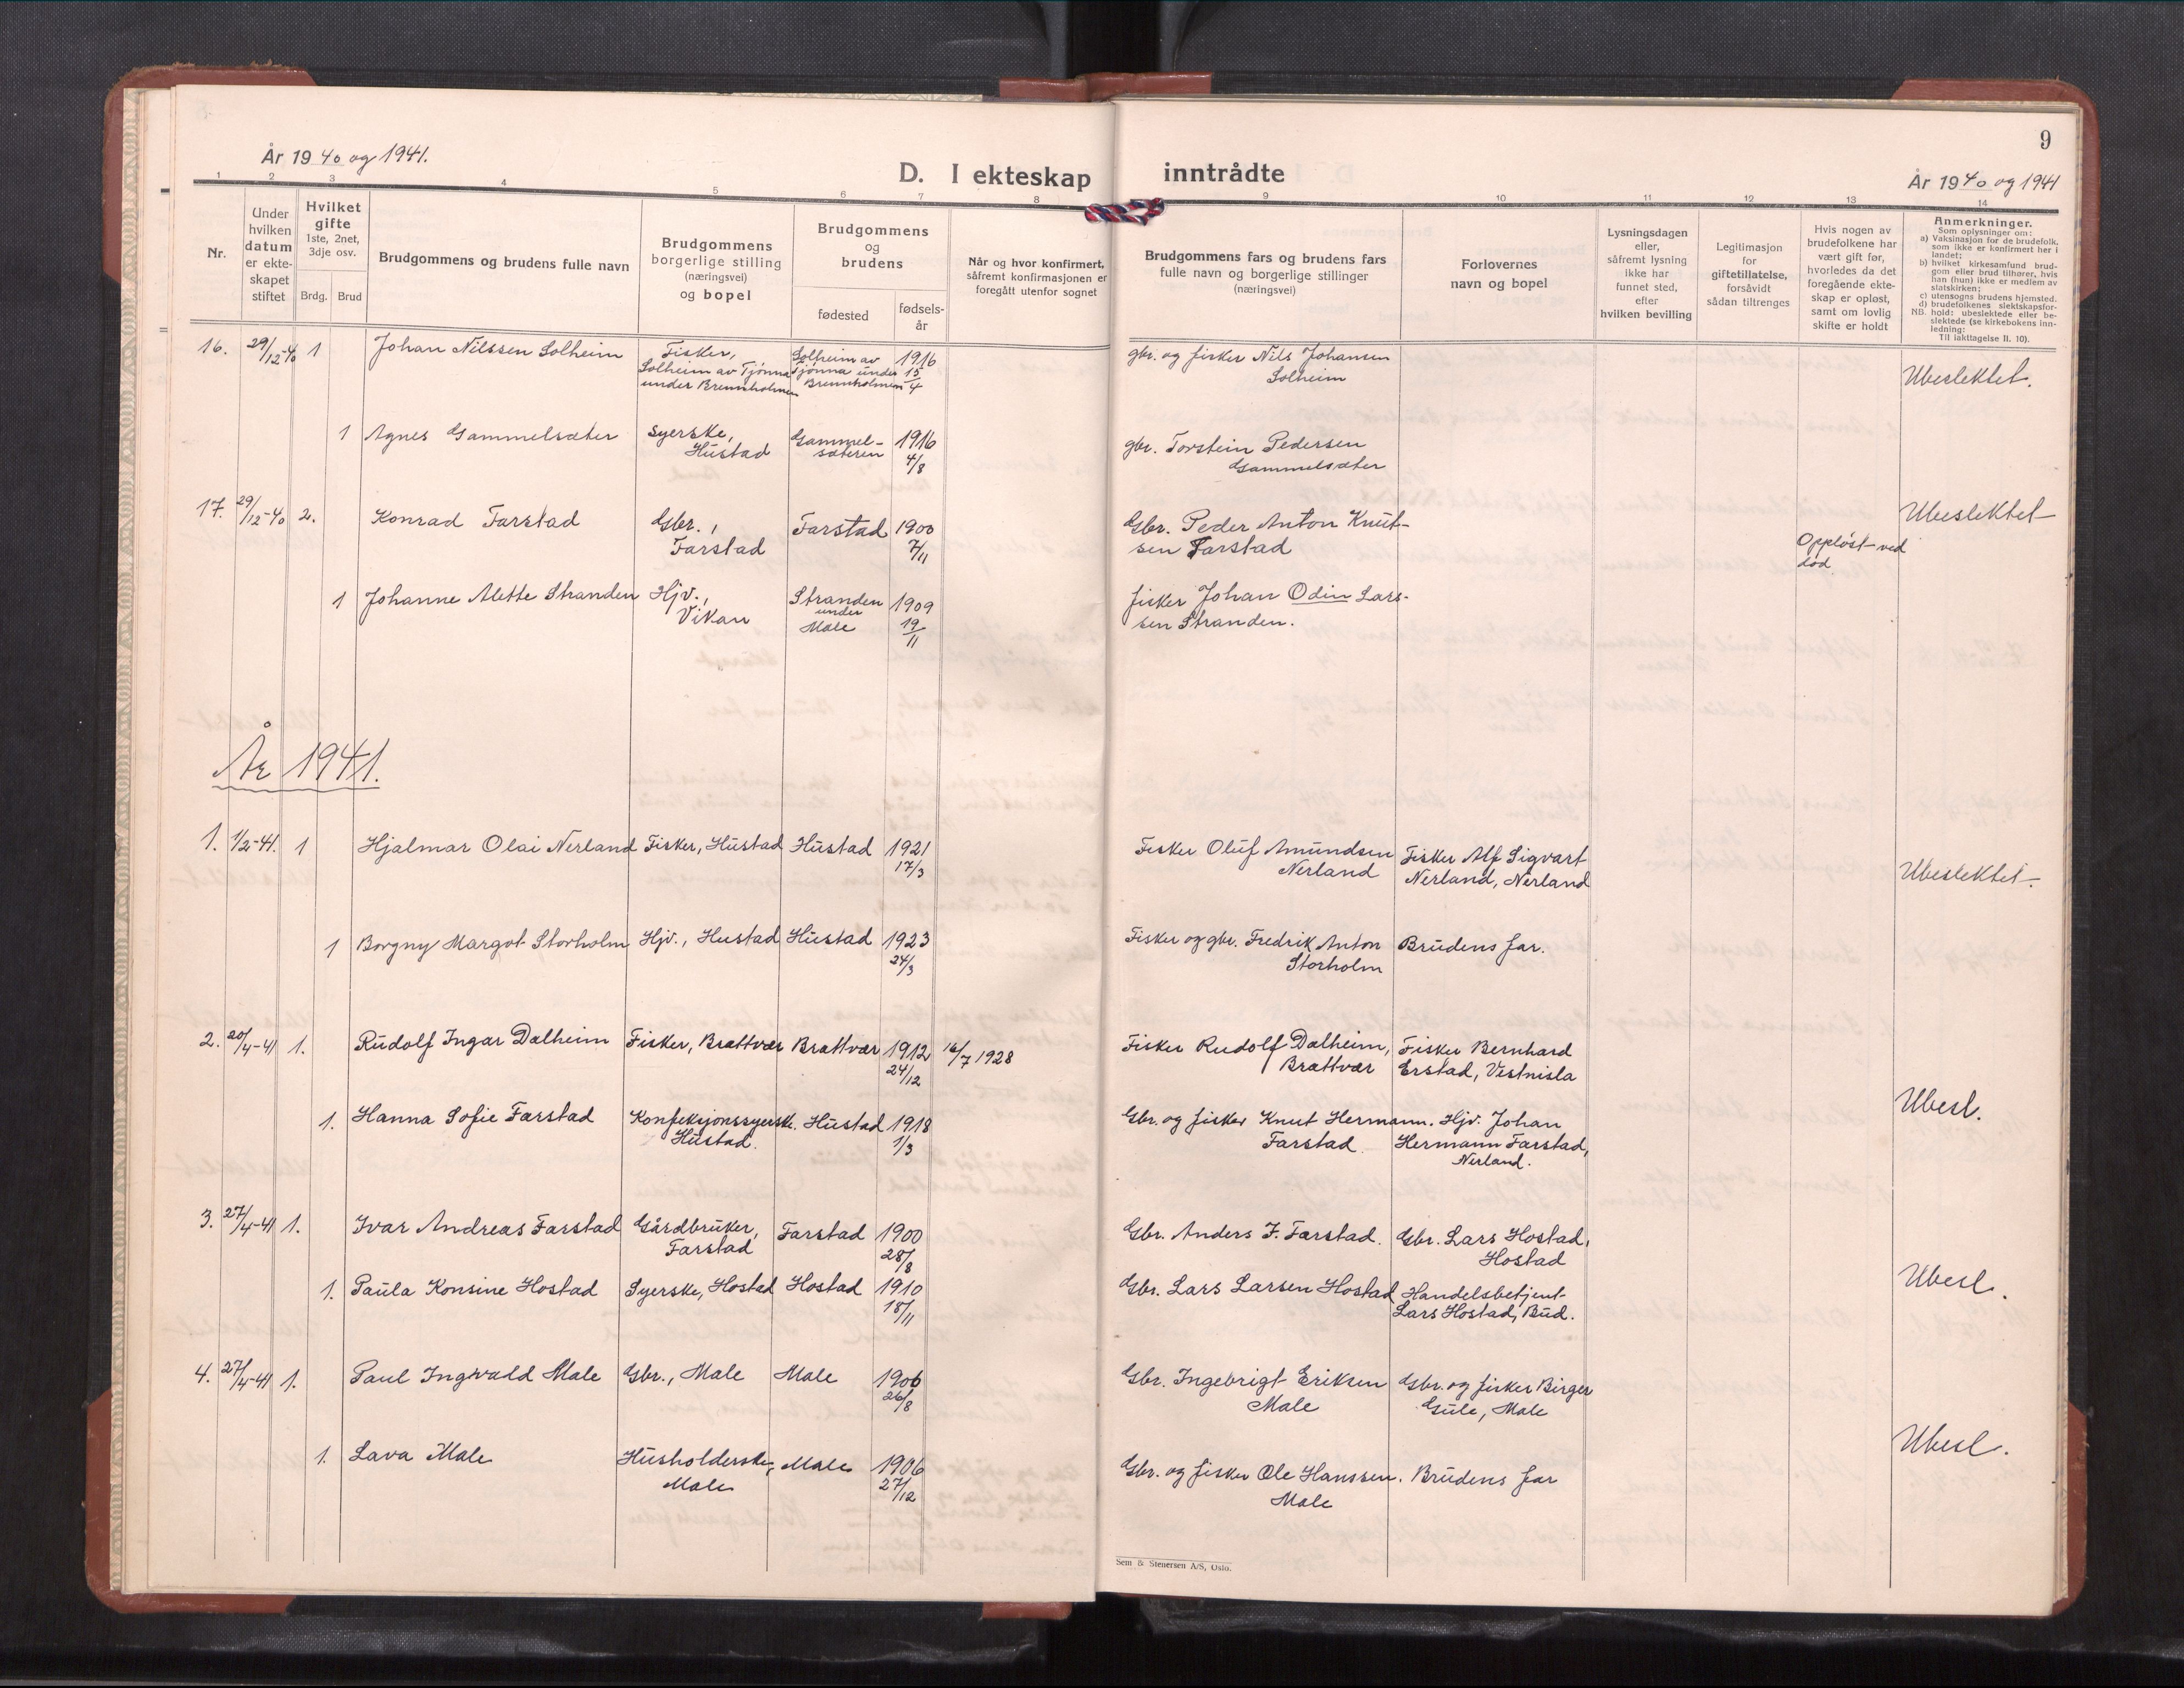 9
År 1940 og 1941.
D. I ekteskap inntrådte
År 1940 og 1941
1 2 3 4 5 6 7 8 9 10 11 12 13 14
Nr.
Under
hvilken
datum
er ekte-
skapet
stiftet
Hvilket
gifte
1ste, 2net,
3dje osv.
Brdg.
Brud
Brudgommens og brudens fulle navn
Brudgommens
borgerlige stilling
(næringsvei)
og bopel
Brudgommens
og
brudens
fødested
fødsels-
år
Når og hvor konfirmert,
såfremt konfirmasjonen er
foregått utenfor sognet
Brudgommens fars og brudens fars
fulle navn og borgerlige stillinger
(næringsvei)
Forlovernes
navn og bopel
Lysningsdagen
eller,
såfremt lysning
ikke har
funnet sted,
efter
hvilken bevilling
Legitimasjon
for
giftetillatelse,
forsåvidt
sådan tiltrenges
Hvis nogen av
brudefolkene har
vært gift før,
hvorledes da det
foregående ekte-
skap er opløst,
samt om lovlig
skifte er holdt
Anmerkninger.
Som oplysninger om:
a) Vaksinasjon for de brudefolk,
som ikke er konfirmert her i
landet;
b) hvilket kirkesamfund brud-
gom eller brud tilhører, hvis
han (hun) ikke er medlem av
statskirken;
c) utensogns brudens hjemsted.
d) brudefolkenes slektskapsfor-
hold: ubeslektede eller be-
slektede (se kirkebokens inn-
ledning:
NB.
Til iakttagelse II. 10).
16. 29/12-40 1 Johan Nilssen Solheim
Fisker,
Solheim av Tjønna
under Brennholmen
Solheim av
Tjønna under
Brennholmen
1916
15/4
gbr. og fisker Nils Johansen
Solheim
Ubeslektet.
1 Agnes Gammelsæter
Syerske,
Hustad
Gammel-
sæteren
1916
4/8
gbr. Torstein Pedersen
Gammelsæter
17. 29/12-40 2. Konrad Farstad
Gbr.,
Farstad
Farstad
1900
7/11
Gbr. Peder Anton Knut-
sen Farstad
Oppløst ved
død.
Ubeslektet
1 Johanne Alette Stranden
Hjv.,
Vikan
Stranden
under
Male
1909
19/11
fisker Johan Odin Lars-
sen Stranden.
År 1941.
1. 1/2-41. 1 Hjalmar Olai Nerland Fisker, Hustad Hustad 1921
17/3
Fisker Oluf Amundsen
Nerland
Fisker Alf Sigvart
Nerland, Nerland
Ubeslektet.
1 Borgny Margot Storholm Hjv., Hustad Hustad 1923
24/3
Fisker og gbr. Fredrik Anton
Storholm
Brudens far.
2. 20/4-41 1. Rudolf Ingar Dalheim Fisker, Brattvær Brattvær 1912
24/12
16/7 1928
Fisker Rudolf Dalheim,
Brattvær
Fisker Bernhard
Erstad, Vestnisla
Ubesl.
1. Hanna Sofie Farstad
Konfeksjonssyerske.
Hustad.
Hustad
1918
1/3
Gbr. og fisker Knut Hermann.
Farstad
Hjv. Johan
Hermann Farstad,
Nerland.
3. 27/4-41 1. Ivar Andreas Farstad
Gårdbruker,
Farstad
Farstad
1900
28/8
Gbr. Anders J. Farstad.
Gbr. Lars Hostad,
Hostad
Ubesl.
1. Paula Konsine Hostad Syerske, Hostad Hostad 1910
18/11
Gbr. Lars Larsen Hostad
Handelsbetjent
Lars Hostad, Bud.
4. 27/4-41 1. Paul Ingvald Male Gbr., Male Male 1906
26/8
Gbr. Ingebrigt Eriksen
Male
Gbr. og fisker Birger
Gule, Male
Ubesl.
1. Lava Male
Husholderske,
Male
Male
1906
27/12
Gbr. og fisker Ole Hanssen.
Male
Brudens far
Sem & Stenersen A/S, Oslo.